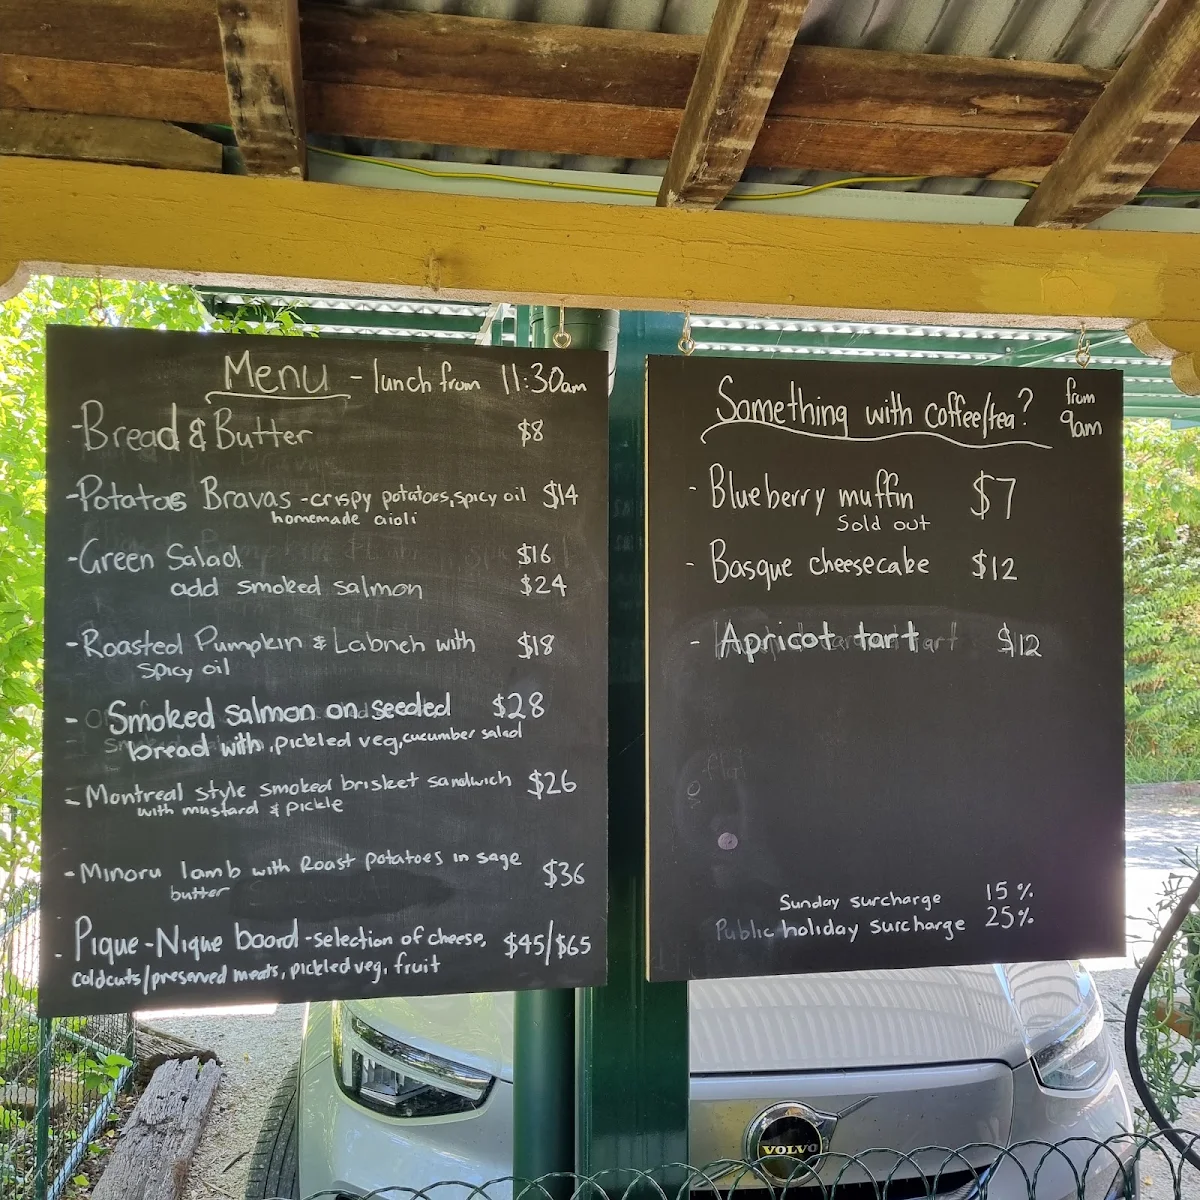 Menu - lunch from 11:30am
- Bread & Butter $8
- Potatoes Bravas - crispy potatoes, spicy oil $14
homemade aioli
- Green Salad $16
add smoked salmon $24
- Roasted Pumpkin & Labneh with $18
spicy oil
- Smoked salmon on seeded $28
bread with, pickled veg, cucumber salad
- Montreal style smoked brisket sandwich $26
with mustard & pickle
- Minoru lamb with Roast potatoes in sage $36
butter
- Pique-Nique board - selection of cheese, $45/$65
coldcuts/preserved meats, pickled veg, fruit
Something with coffee/tea? from
9am
- Blueberry muffin $7
Sold out
- Basque cheesecake $12
- Apricot tart $12
Sunday surcharge 15%
Public holiday surcharge 25%
VOLVO